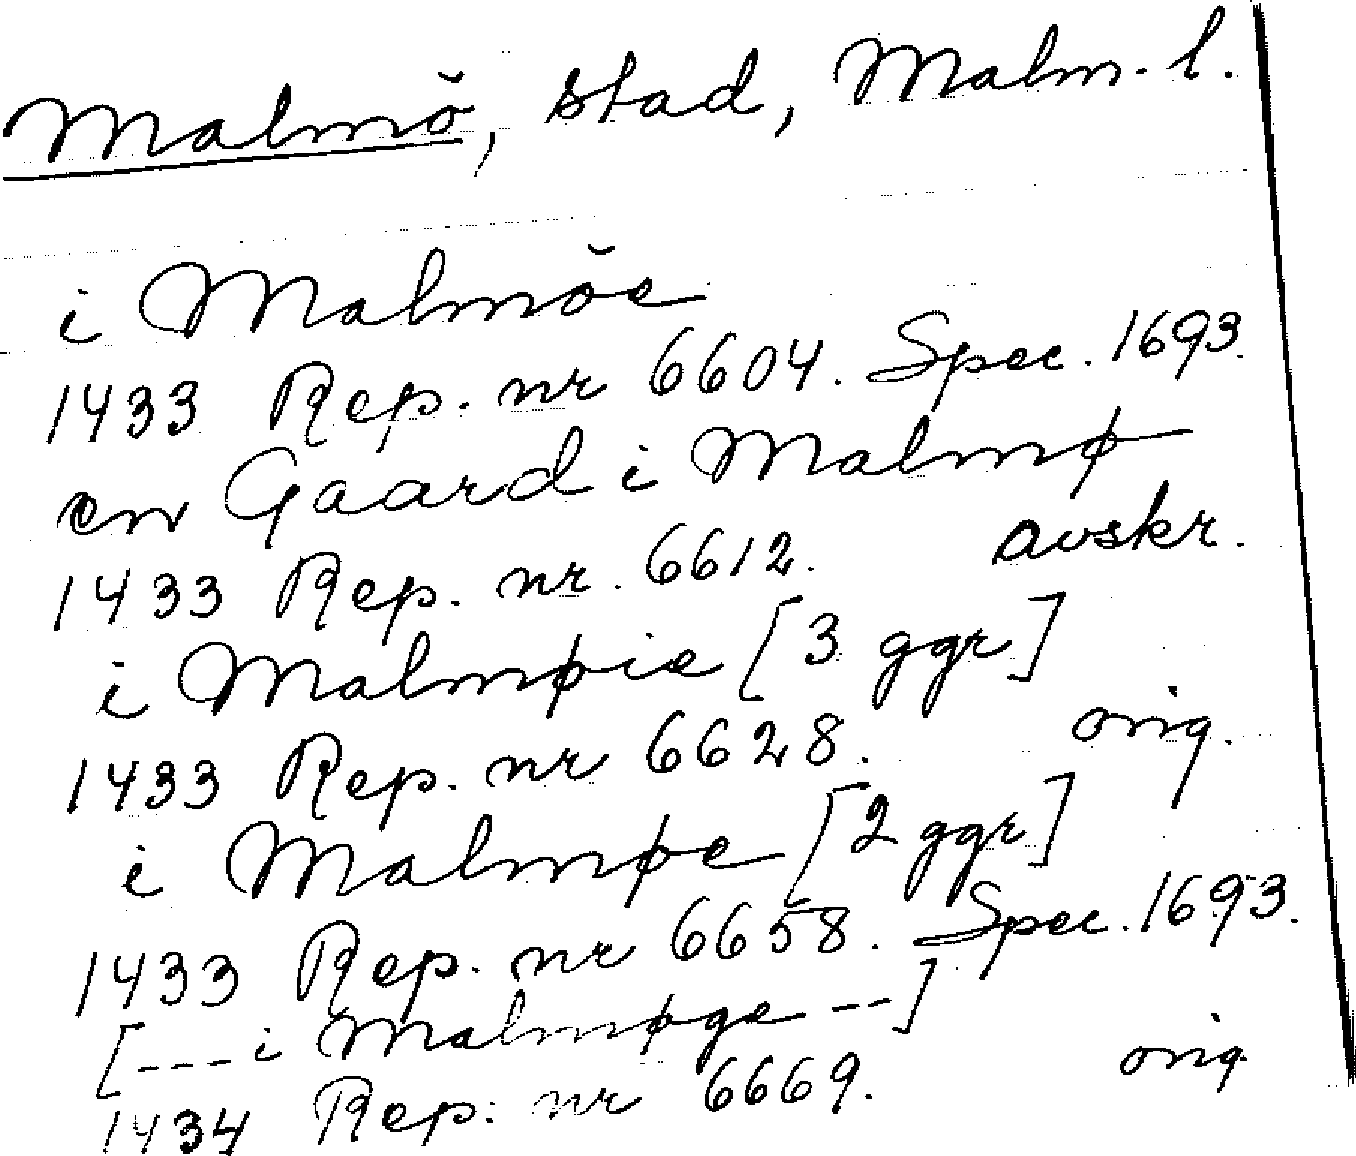 Malmö, stad, Malm. l.
i Malmöe
1433 Rep. nr 6604. Spec. 1693.
en Gaard i Malmø
1433 Rep. nr. 6612. avskr.
i Malmøie [3 ggr]
1433 Rep. nr 6628. orig.
i Malmøe [2 ggr]
1433 Rep. nr 6658. Spec. 1693.
[--- i Malmøge --]
1434 Rep. nr 6669. orig